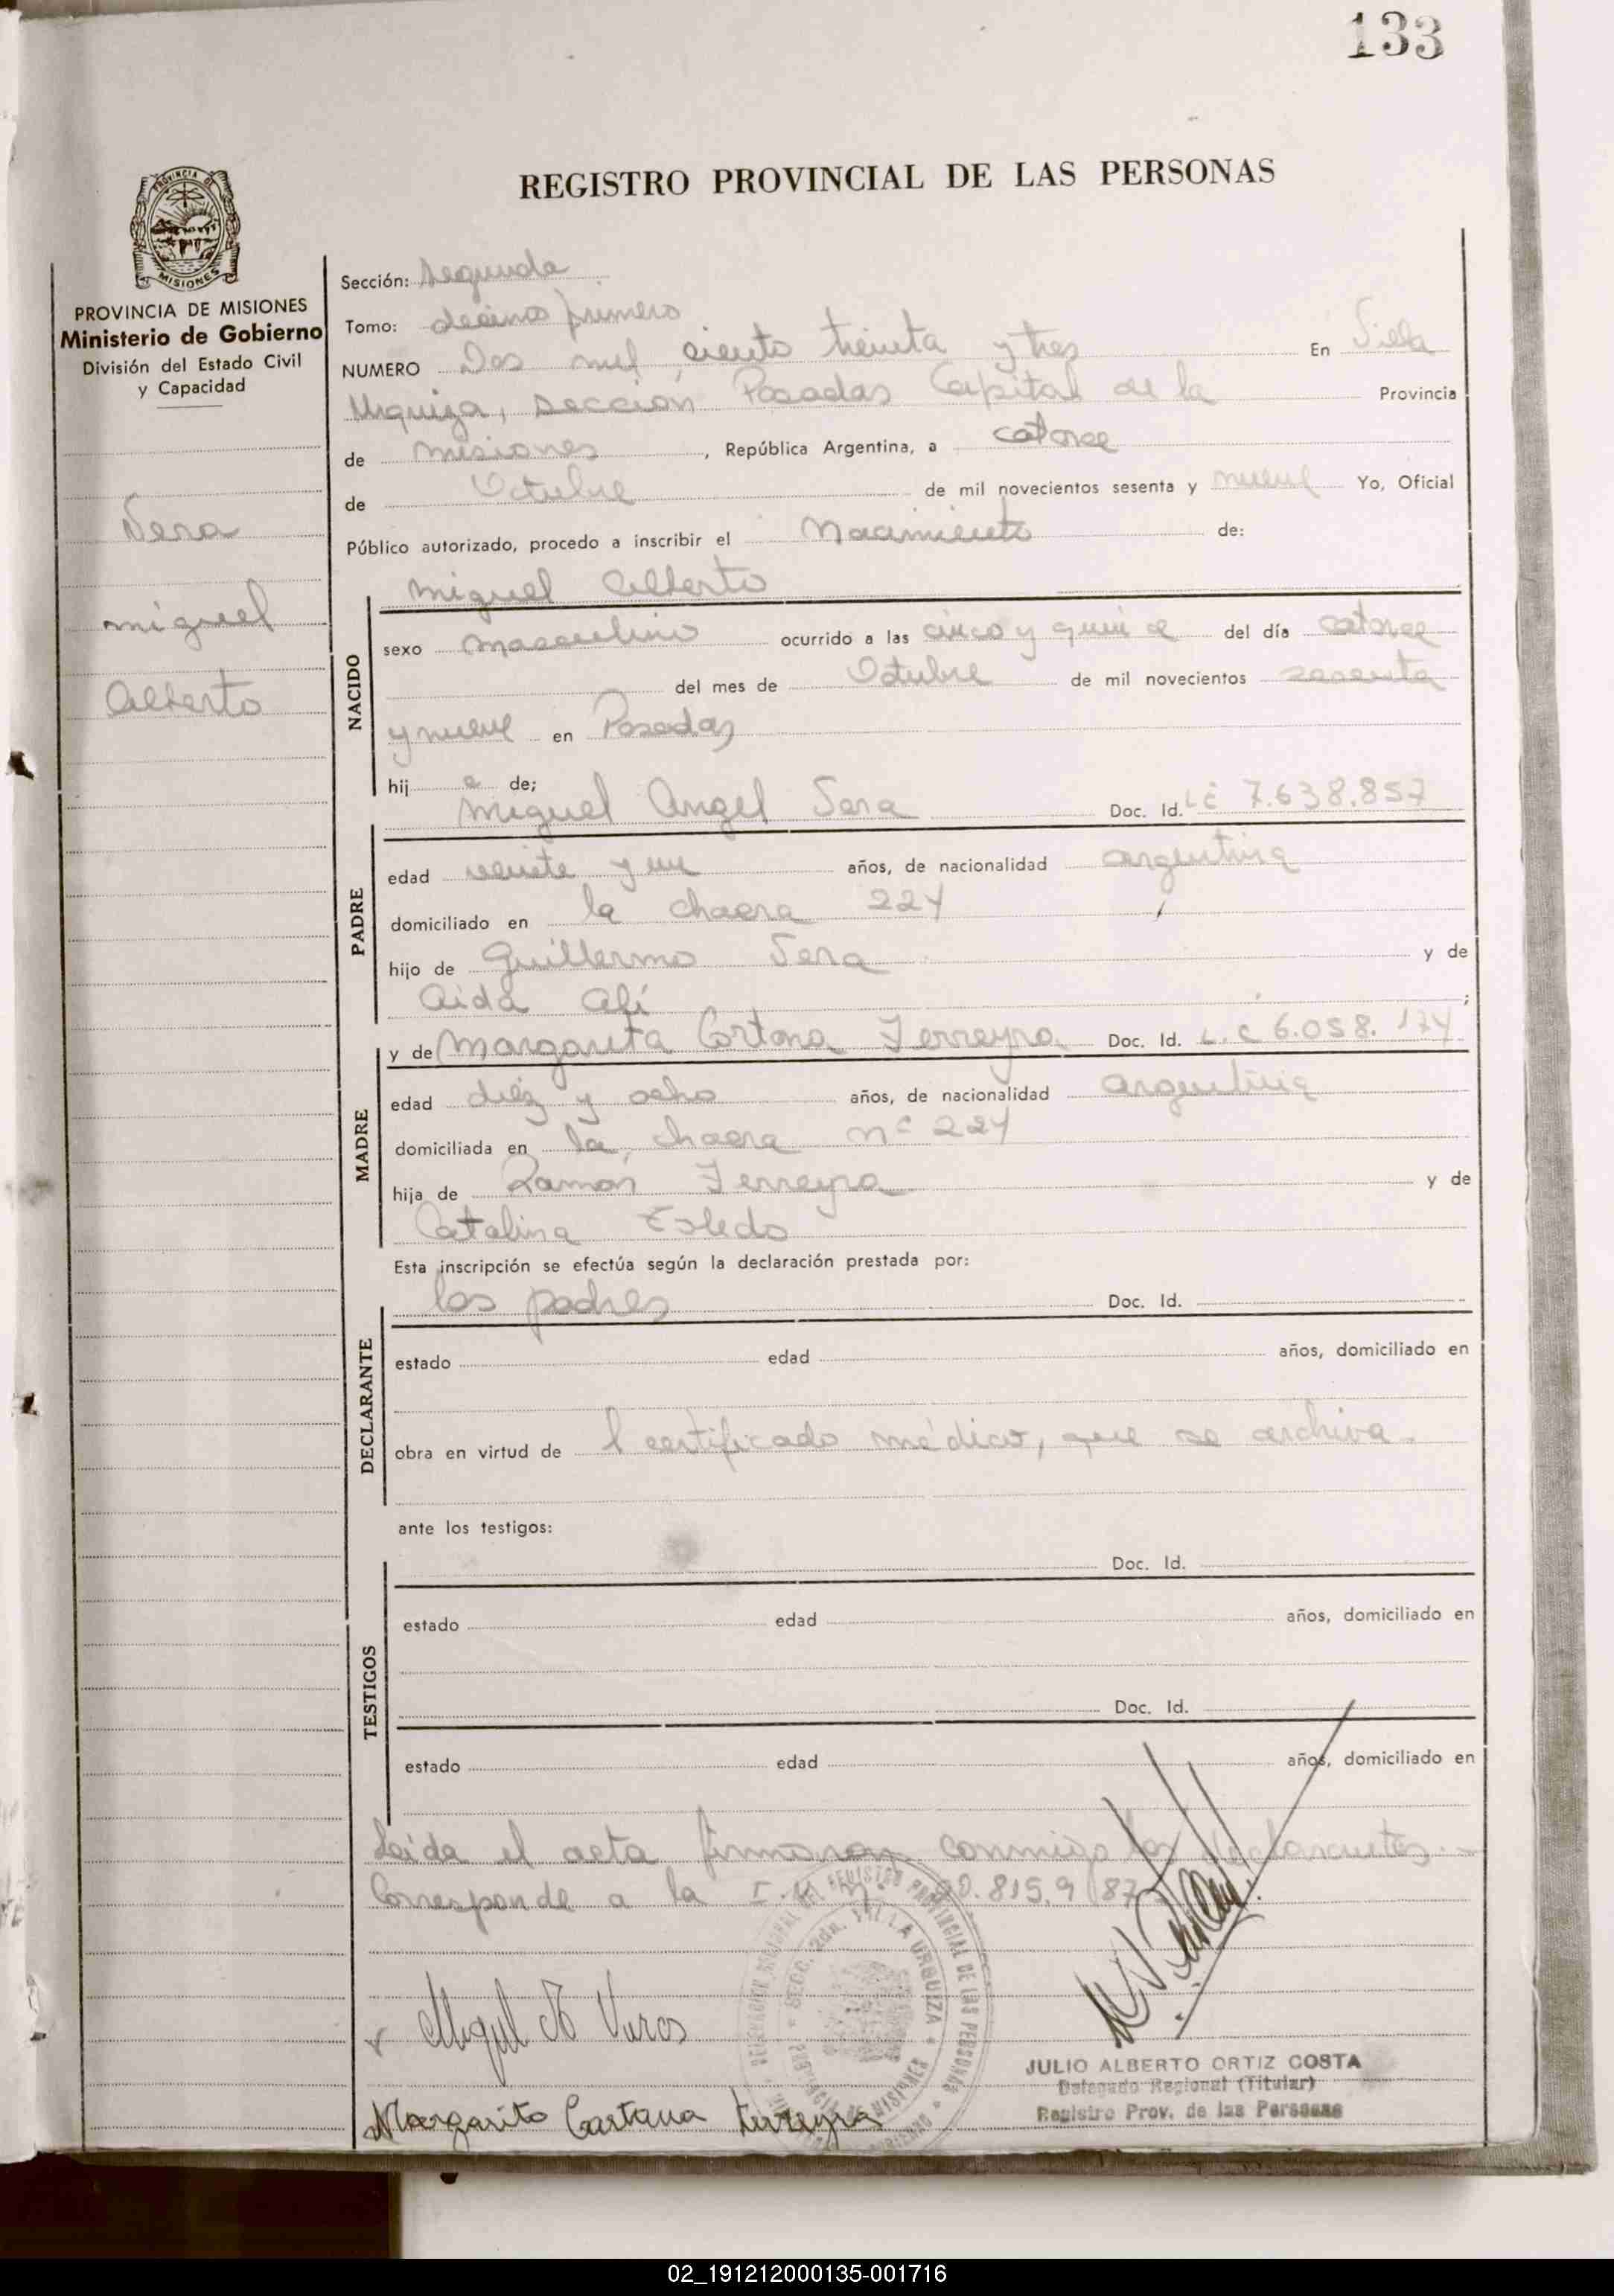 133
REGISTRO PROVINCIAL DE LAS PERSONAS
MISIONES
PROVINCIA DE MISIONES
Ministerio de Gobierno
División del Estado Civil
y Capacidad
Vera
Miguel
Alberto
Sección: Segunda
Tomo: décimo primero
NUMERO Dos mil ciento treinta y tres En Villa
Urquiza, Sección Posadas Capital de la Provincia
de Misiones, República Argentina, a catorce
de Octubre de mil novecientos sesenta y nueve Yo, Oficial
Público autorizado, procedo a inscribir el Nacimiento de:
NACIDO
Miguel Alberto
sexo masculino ocurrido a las cinco y quince del día catorce
del mes de Octubre de mil novecientos sesenta
y nueve en Posadas
hij o de;
Miguel Angel Vera Doc. Id. LE 7.638.857
PADRE
edad veinte y un años, de nacionalidad argentina
domiciliado en la chacra 224
hijo de Guillermo Vera y de
Aida
y de Margarita Cortana Ferreyra Doc. Id. L.C 6.058.174
MADRE
edad diez y ocho años, de nacionalidad argentina
domiciliada en la chacra nº 224
hija de Ramon Ferreyra y de
Catalina Toledo
Esta inscripción se efectúa según la declaración prestada por:
los padres Doc. Id.
DECLARANTE
estado edad años, domiciliado en
obra en virtud de l certificado médico, que se archiva.
ante los testigos:
Doc. Id.
TESTIGOS
estado edad años, domiciliado en
Doc. Id.
estado edad años, domiciliado en
Leida el acta firmaron conmigo los declarantes.-
Corresponde a la
Miguel A
Margarita Cartana Ferreyra
SECC. 2da. VILLA URQUIZA
REGISTRO PROVINCIAL DE LAS PERSONAS
JULIO ALBERTO ORTIZ COSTA
Delegado Regional (Titular)
Registro Prov. de las Personas
02_191212000135-001716